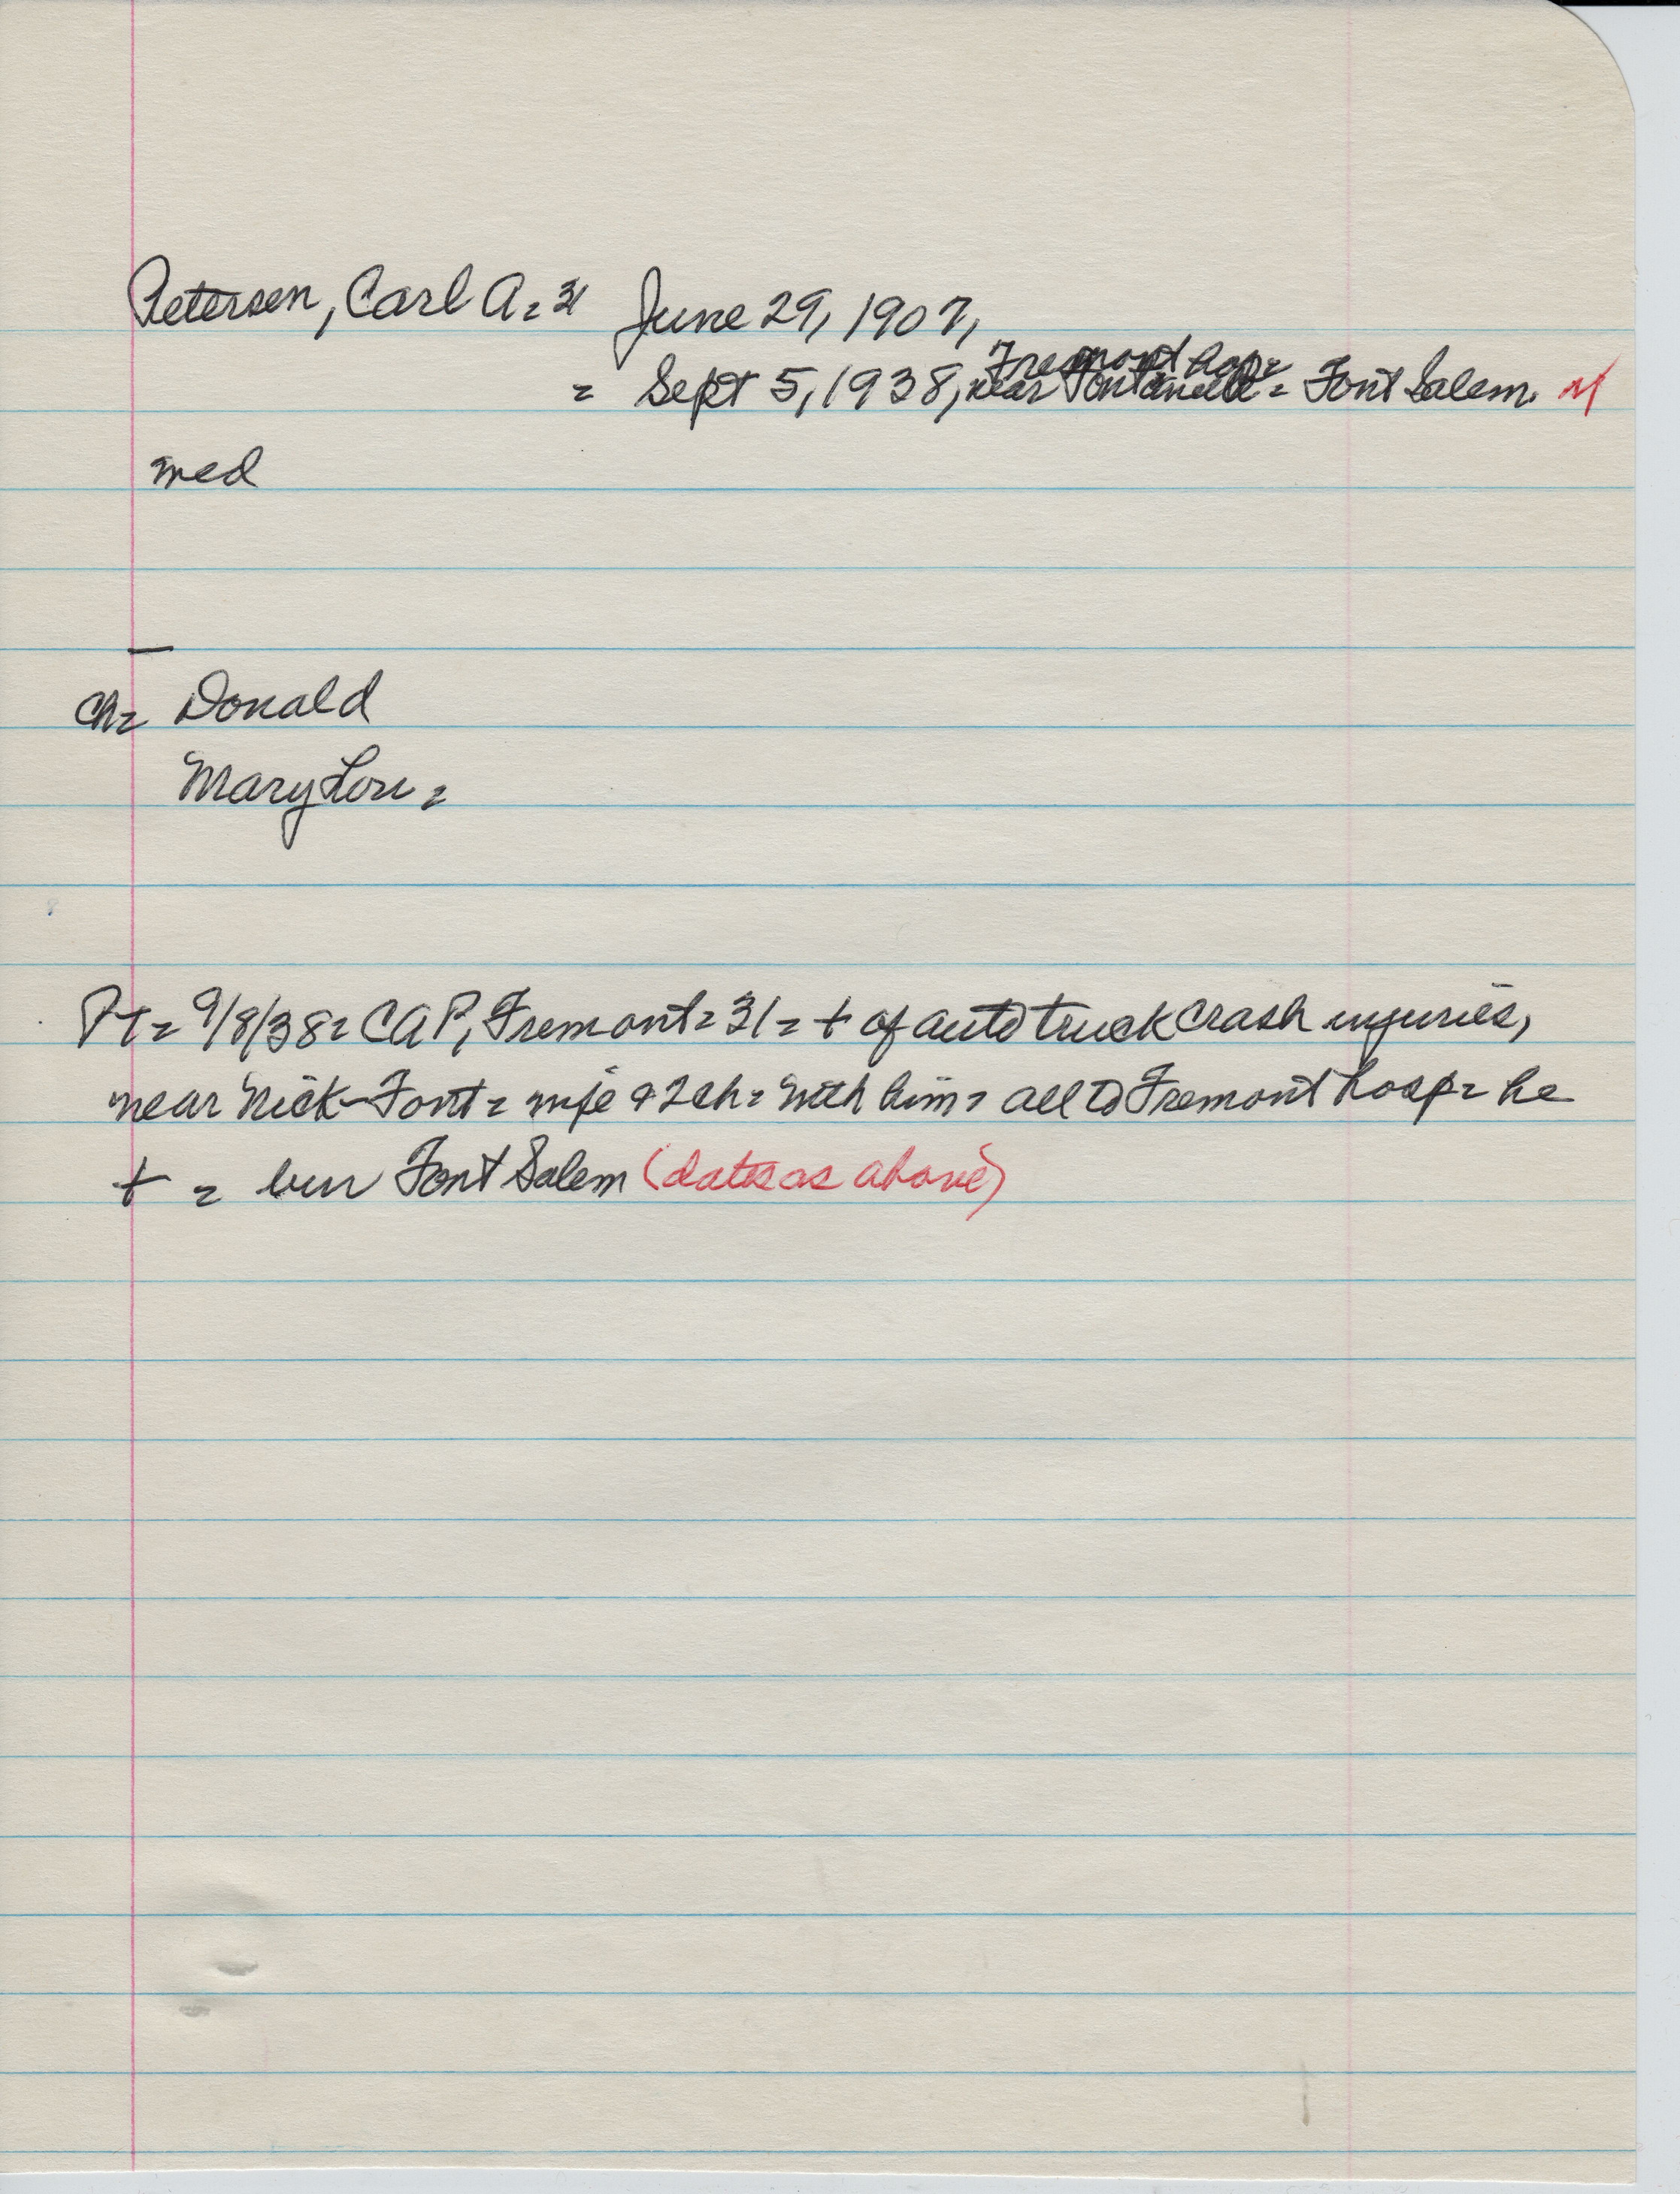 Petersen, Carl A = 31 June 29, 1907,
Fremont hosp =
= Sept 5, 1938, near Fontanelle = Font Salem.
med
—
Ch = Donald
Mary Lou =
Pt = 9/8/38 = CAP, Fremont = 31 = + of auto truck crash injuries,
near Nick-Font = wife & 2 ch = with him = all to Fremont hosp = he
+ = bur Font Salem (dates as above)